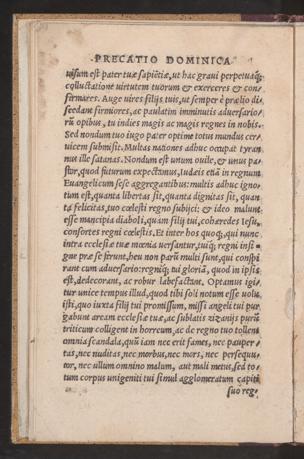 PRECATIO DOMINICA.
uisum est pater tuæ sapiẽtiæ, ut hac graui perpetuaq́;
colluctatione uirtutem tuorum & exerceres & con-
firmares. Auge uires filijs tuis, ut semper è prælio di-
scedant firmiores, ac paulatim imminutis aduersario-
rũ opibus, tu indies magis ac magis regnes in nobis.
Sed nondum tuo iugo pater optime totus mundus cer-
uicem submisit. Multas nationes adhuc occupat tyran
nus ille satanas. Nondum est unum ouile, & unus pa-
stor, quod futurum expectamus, Iudæis etiã in regnum
Euangelicum sese aggregantibus: multis adhuc igno-
tum est, quanta libertas sit, quanta dignitas sit, quan-
ta felicitas, tuo cœlesti regno subijci: & ideo malunt
esse mancipia diaboli, quam filij tui, cohæredes Iesu,
consortes regni cœlestis. Et inter hos quoq;, qui nunc
intra ecclesiæ tuæ mœnia uersantur, tuiq́; regni insi-
gne præ se ferunt, heu non parũ multi sunt, qui conspi
rant cum aduersario: regniq́; tui gloriã, quod in ipsis
est, dedecorant, ac robur labefactant. Optamus igi-
tur unice tempus illud, quod tibi soli notum esse uolu
isti, quo iuxta filij tui promissum, missi angeli tui pur
gabunt aream ecclesiæ tuæ, ac sublatis zizanijs purũ
triticum colligent in horreum, ac de regno tuo tollent
omnia scandala, quũ iam nec erit fames, nec pauper-
tas, nec nuditas, nec morbus, nec mors, nec persequu-
tor, nec ullum omnino malum, aut mali metus, sed to-
tum corpus unigeniti tui simul agglomeratum capiti
suo reg-